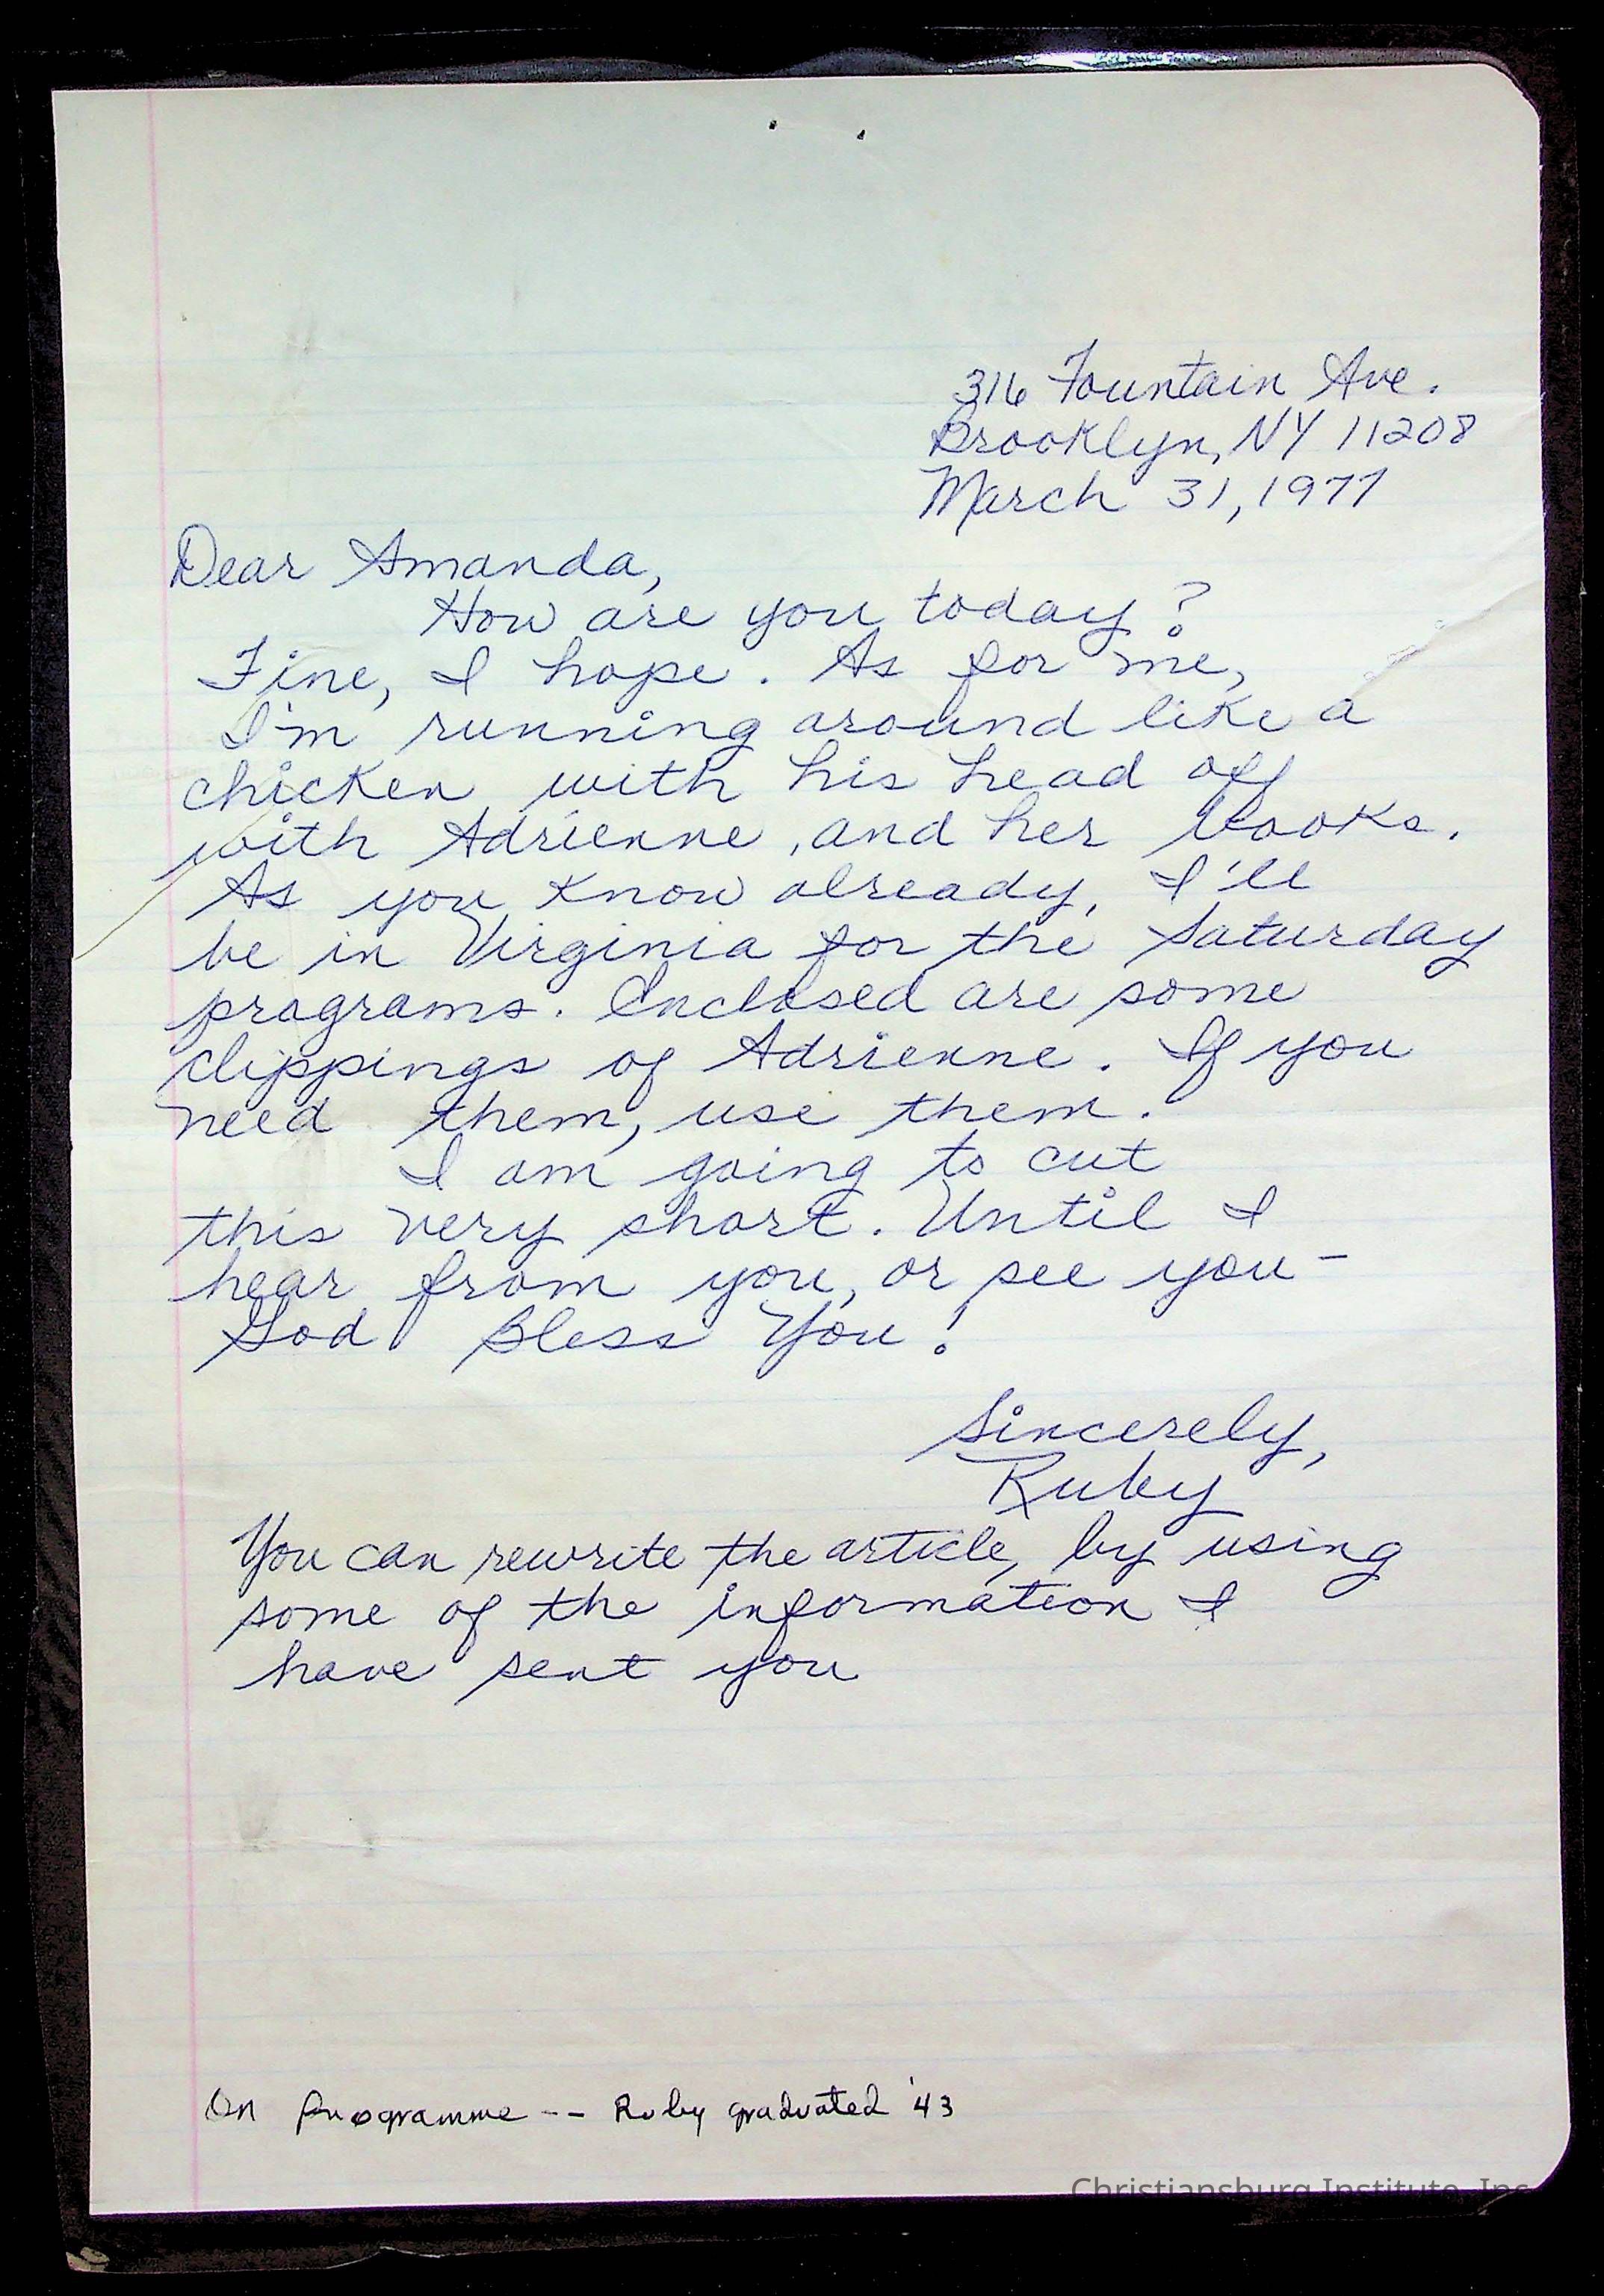 316 Fountain Ave.
Brooklyn, NY 11208
March 31, 1977
Dear Amanda,
How are you today?
Fine, I hope. As for me,
I'm running around like a
chicken with his head off
with Adrienne, and her books.
As you know already, I'll
be in Virginia for the Saturday
programs. Enclosed are some
clippings of Adrienne. If you
need them, use them.
I am going to cut
this very short. Until I
hear from you, or see you-
God Bless You!
Sincerely,
Ruby
You can rewrite the article, by using
some of the information I
have sent you
On Programme -- Ruby graduated '43
Christiansburg Institute, Inc